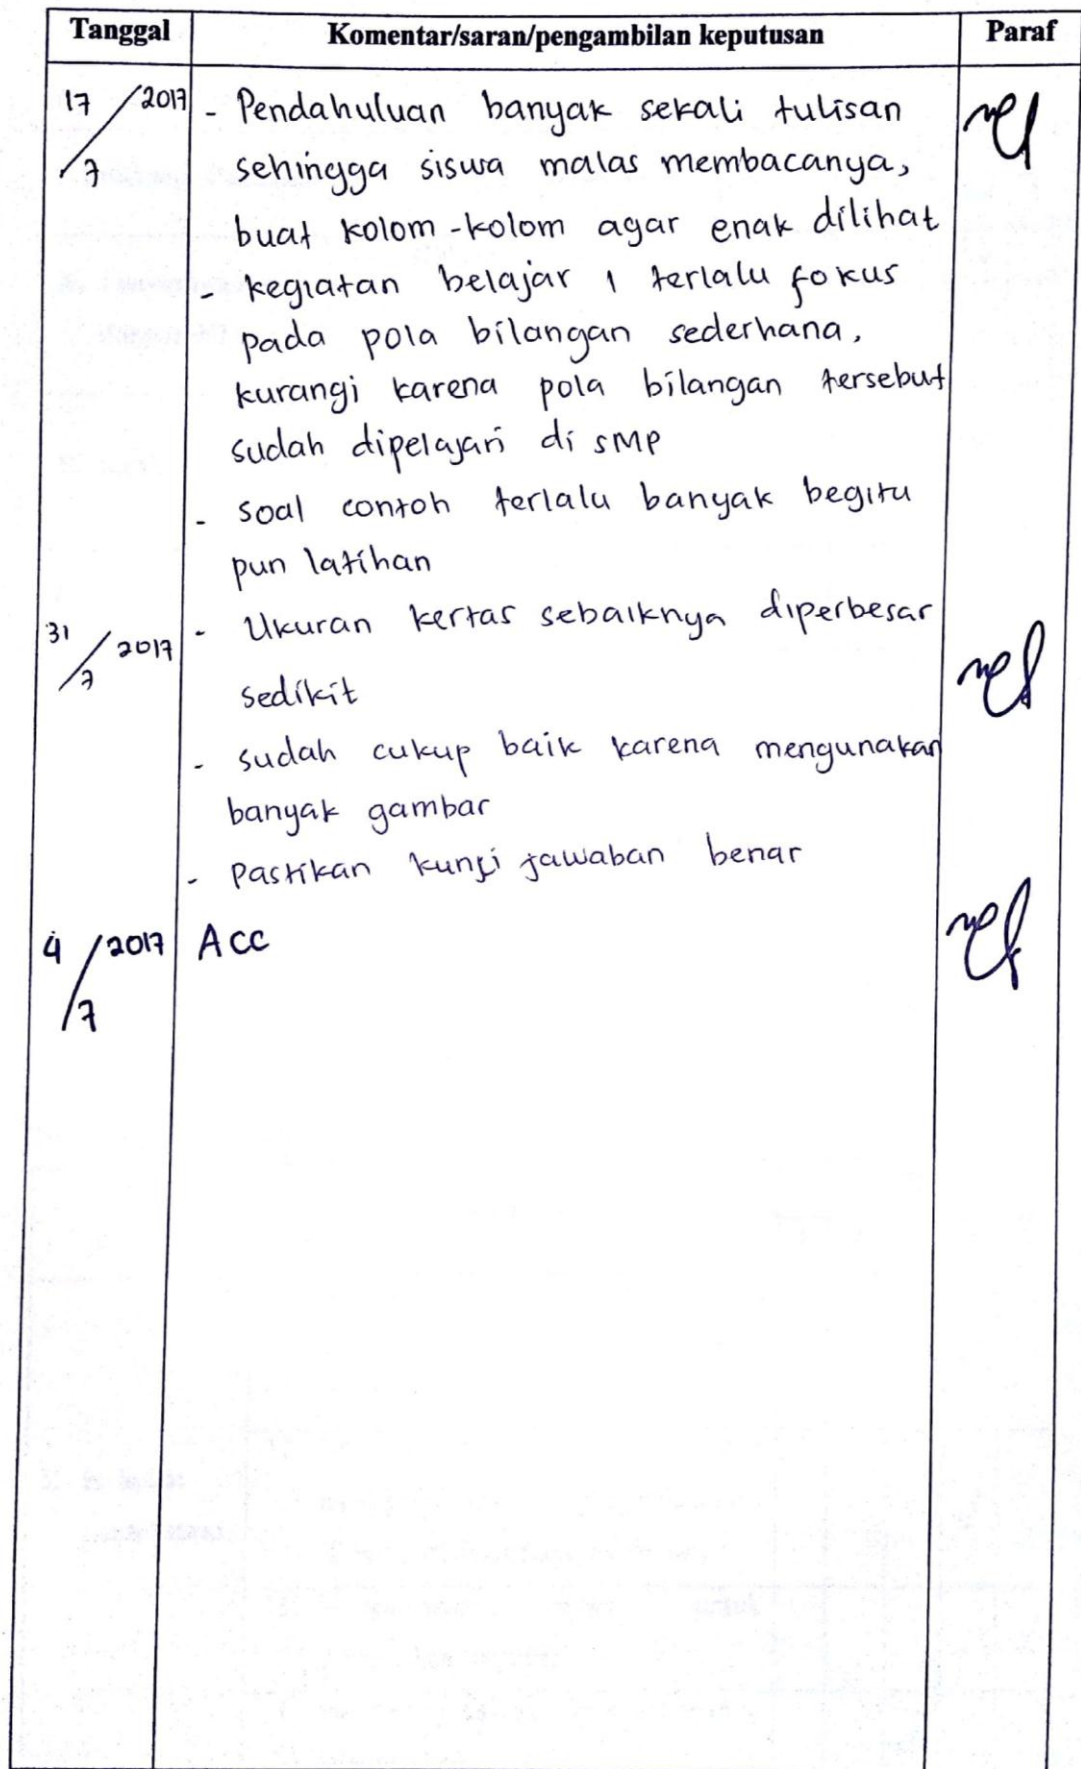 Tanggal Komentar/saran/pengambilan keputusan Paraf
17/7 2017 - Pendahuluan banyak sekali tulisan
sehingga siswa malas membacanya,
buat kolom-kolom agar enak dilihat
- kegiatan belajar 1 terlalu fokus
pada pola bilangan sederhana,
kurangi karena pola bilangan tersebut
sudah dipelajari di SMP
- soal contoh terlalu banyak begitu
pun latihan
31/7 2017 - Ukuran kertas sebaiknya diperbesar
sedikit
- sudah cukup baik karena mengunakan
banyak gambar
- Pastikan kunci jawaban benar
4/7 2017 Acc